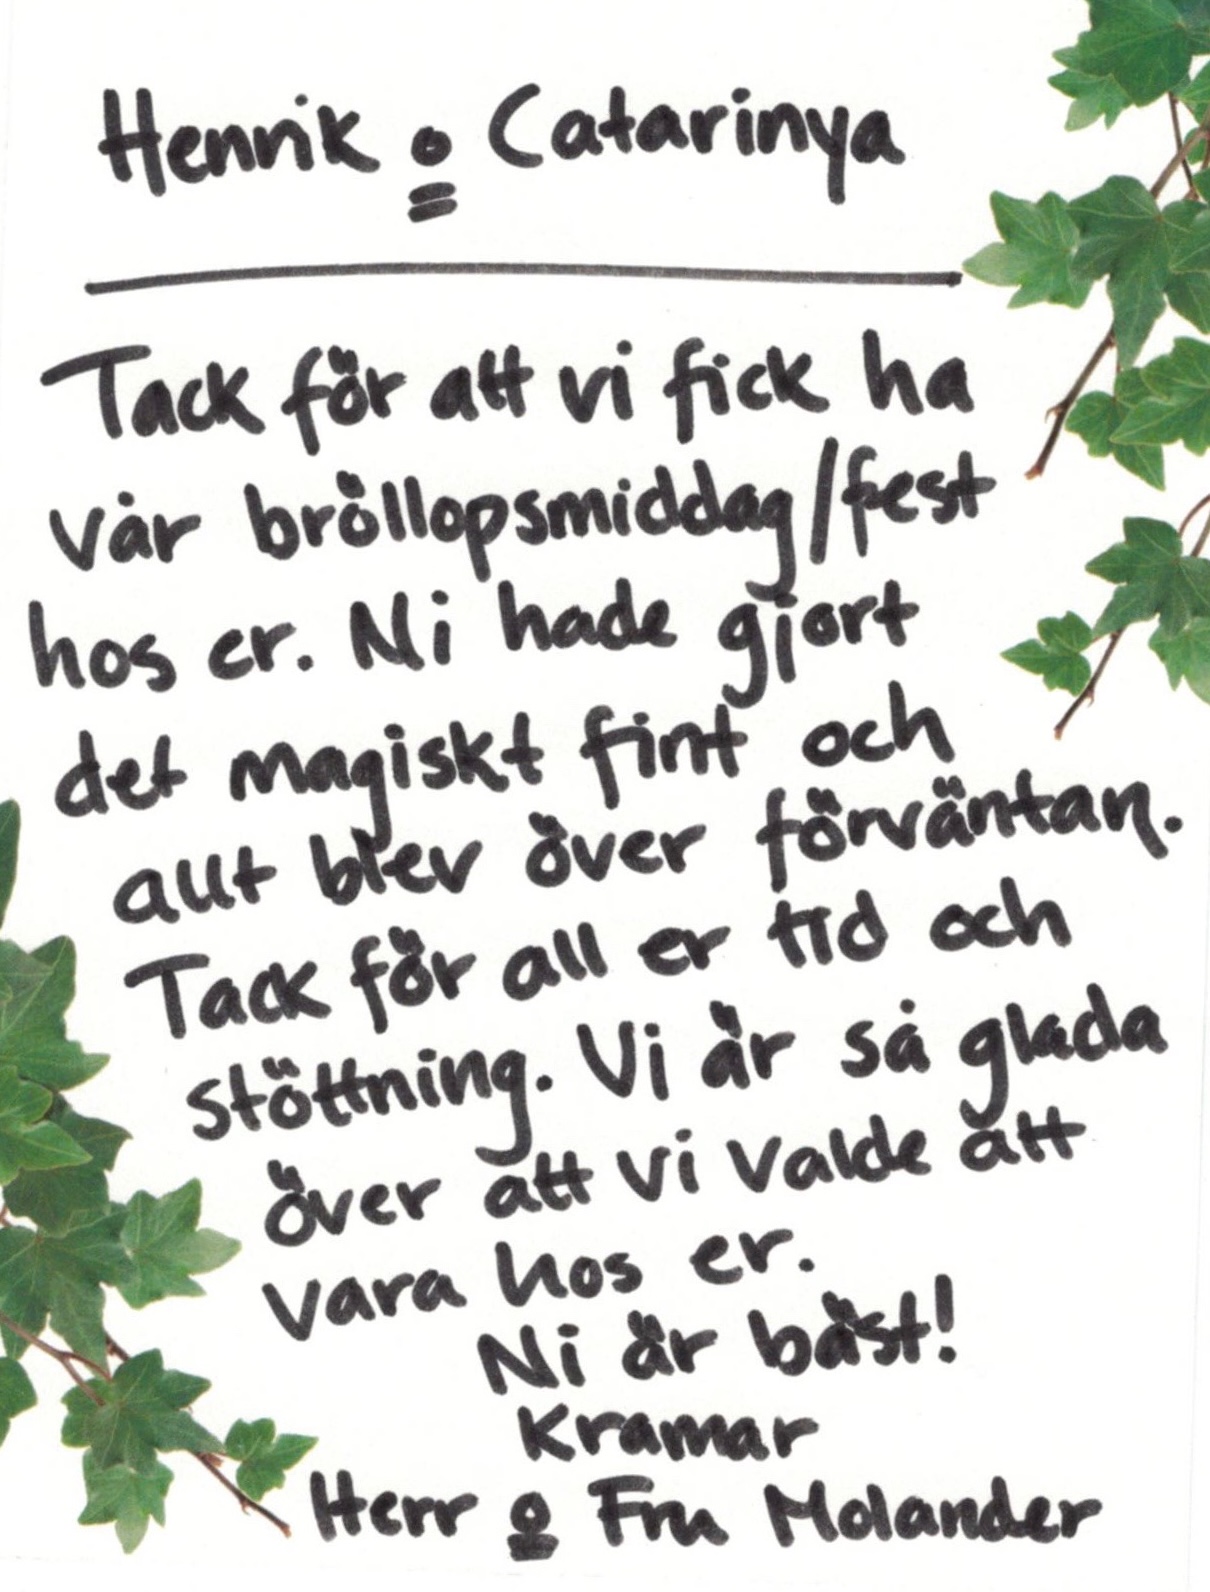 Henrik o Catarinya
Tack för att vi fick ha
vår bröllopsmiddag/fest
hos er. Ni hade gjort
det magiskt fint och
allt blev över förväntan.
Tack för all er tid och
stöttning. Vi är så glada
över att vi valde att
vara hos er.
Ni är bäst!
Kramar
Herr o Fru Molander